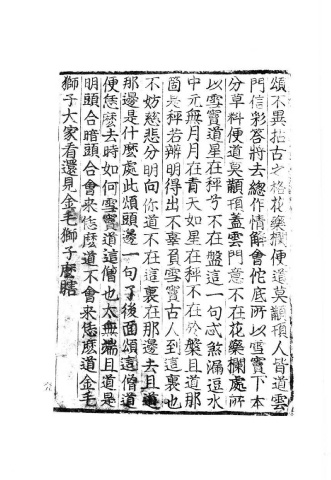 頌不異拈古之格花藥欄便道莫顢頇人皆道雲
門信彩答將去總作情解會佗底所以雪竇下本
分草料便道莫顢頇蓋雲門意不在花藥欄處所
以雪竇道星在秤兮不在盤這一句忒煞漏逗水
中元無月月在青天如星在秤不在於盤且道那
箇是秤若辨明得出不辜負雪竇古人到這裏也
不妨慈悲分明向你道不在這裏在那邊去且道
那邊是什麼處此頌頭邊一句了後面頌這僧道
便恁麼去時如何雪竇道這僧也太無端且道是
明頭合暗頭合會來恁麼道不會來恁麼道金毛
獅子大家看還見金毛獅子麼瞎